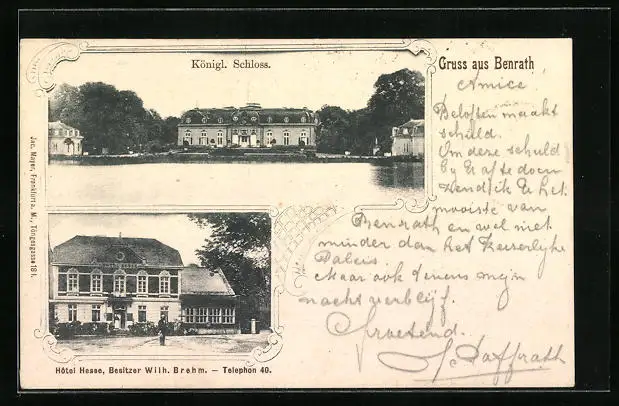 Gruss aus Benrath
Königl. Schloss.
Amice
Beloften maakt
schuld.
Om deze schuld
bij U af te doen
zend ik U het
mooiste van
Benrath en wel niet
minder dan het Keizerlyke
Paleis.
Maar ook 'teens mijn
nachtverblijf.
Groetend.
Jac. Mayer, Frankfurt a. M., Töngesgasse 181.
Hôtel Hesse, Besitzer Wilh. Brehm. — Telephon 40.